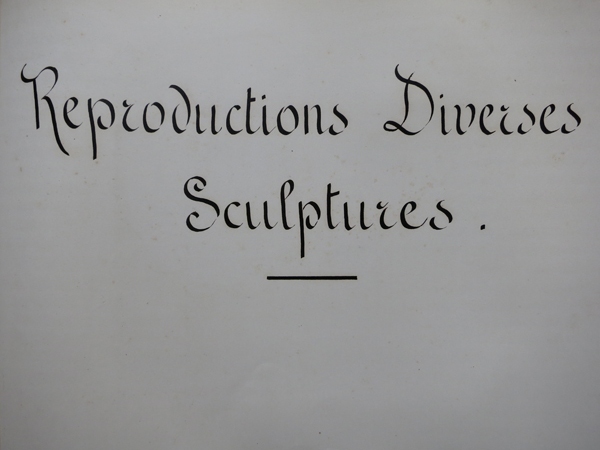 Reproductions Diverses
Sculptures.